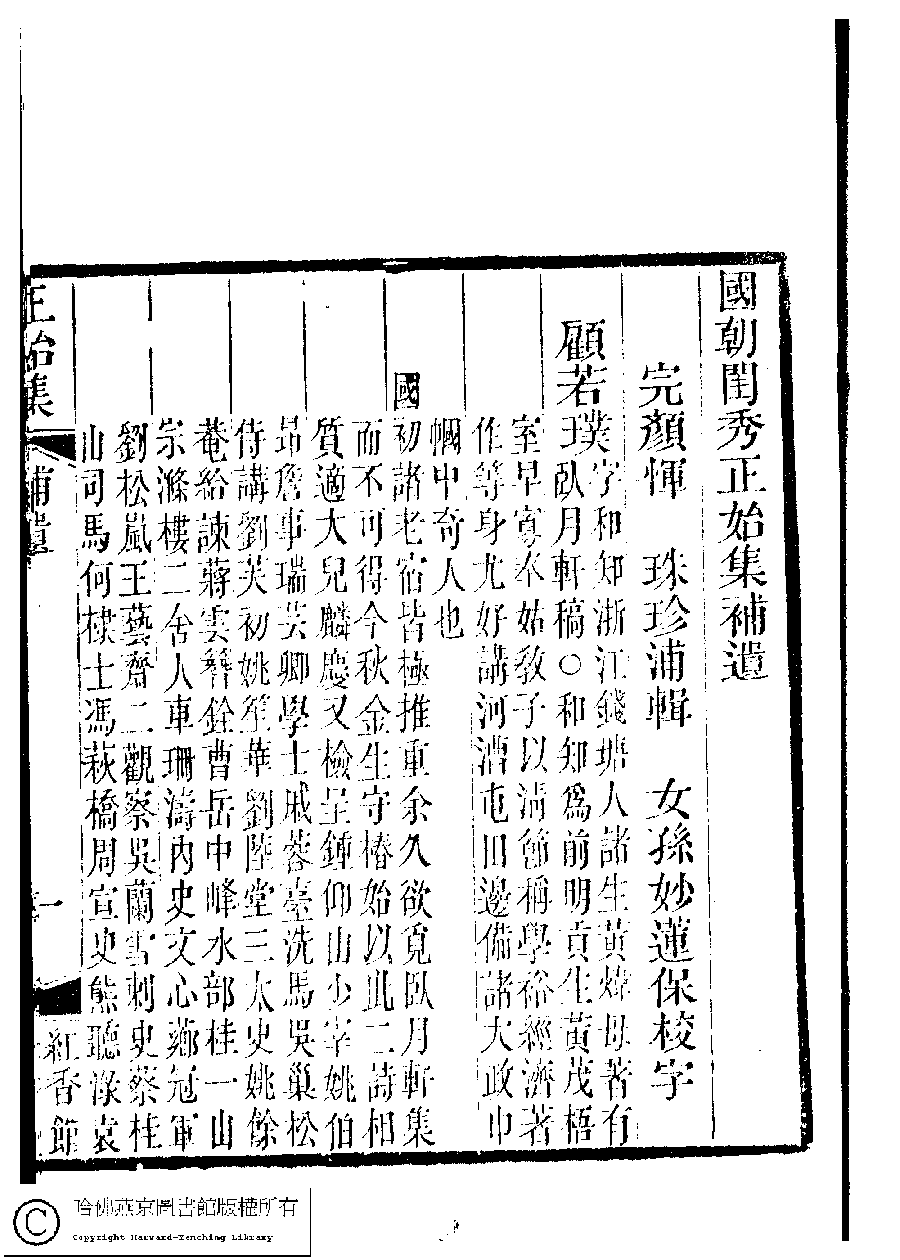 國朝閨秀正始集補遺
完顏惲 珠珍浦輯 女孫妙蓮保校字
顧若璞字和知浙江錢塘人諸生黃煒母著有
臥月軒稿○和知為前明貢生黃茂梧
室早寡奉姑教子以淸節稱學裕經濟著
作等身尤好講河漕屯田邊備諸大政巾
幗中奇人也
國初諸老宿皆極推重余久欲覓臥月軒集
而不可得今秋金生守椿始以此二詩相
質適大兒麟慶又檢呈鍾仰山少宰姚伯
昂詹事瑞芸卿學士戚蓉臺洗馬吳巢松
侍講劉芙初姚笙華劉陞堂三太史姚餘
菴給諫蔣雲簪銓曹岳中峰水部桂一山
宗滌樓二舍人車珊濤內史文心薌冠軍
劉松嵐王藝齋二觀察吳蘭雪刺史蔡桂
山司馬何棣士馮萩橋周宣史熊聽淥袁
正始集
補遺
一
紅香館
哈佛燕京圖書館版權所有
Copyright Harvard-Yenching Library